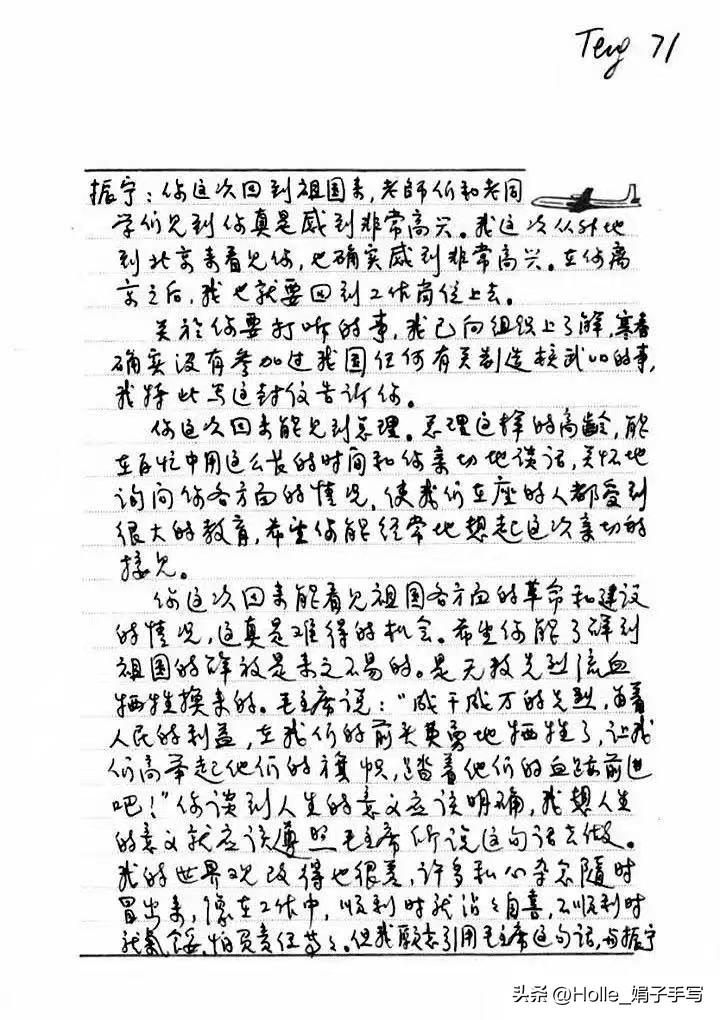 Teng 71
振宁：你这次回到祖国来，老师们和老同
学们见到你真是感到非常高兴。我这次从外地
到北京来看见你，也确实感到非常高兴。在你离
京之后，我也就要回到工作岗位上去。
关於你要打听的事，我已向组织上了解，寒春
确实没有参加过我国任何有关制造核武的事，
我特此写这封信告诉你。
你这次回来能见到总理。总理这样的高龄，能
在百忙中用这么长的时间和你亲切地谈话，关怀地
询问你各方面的情况，使我们在座的人都受到
很大的教育，希望你能经常地想起这次亲切的
接见。
你这次回来能看见祖国各方面的革命和建设
的情况，这真是难得的机会。希望你能了解到
祖国的解放是来之不易的。是无数先烈流血
牺牲换来的。毛主席说：“成千成万的先烈，为着
人民的利益，在我们的前头英勇地牺牲了，让我
们高举起他们的旗帜，踏着他们的血迹前进
吧！”你谈到人生的意义应该明确，我想人生
的意义就应该遵照毛主席所说这句话去做。
我的世界观改得也很差，许多私心杂念随时
冒出来，像在工作中，顺利时就沾沾自喜，不顺利时
就气馁，怕负责任等等。但我愿意引用毛主席这句话，与振宁
头条 @Holle_娟子手写